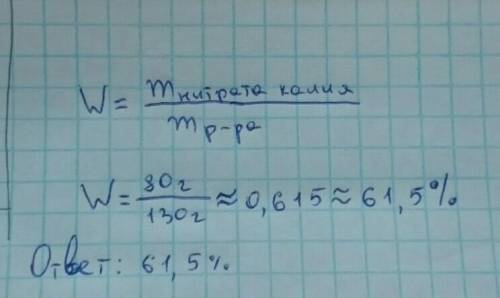 W = m нитрата калия / m р-ра
W = 80г / 130г ≈ 0,615 ≈ 61,5%
Ответ: 61,5%